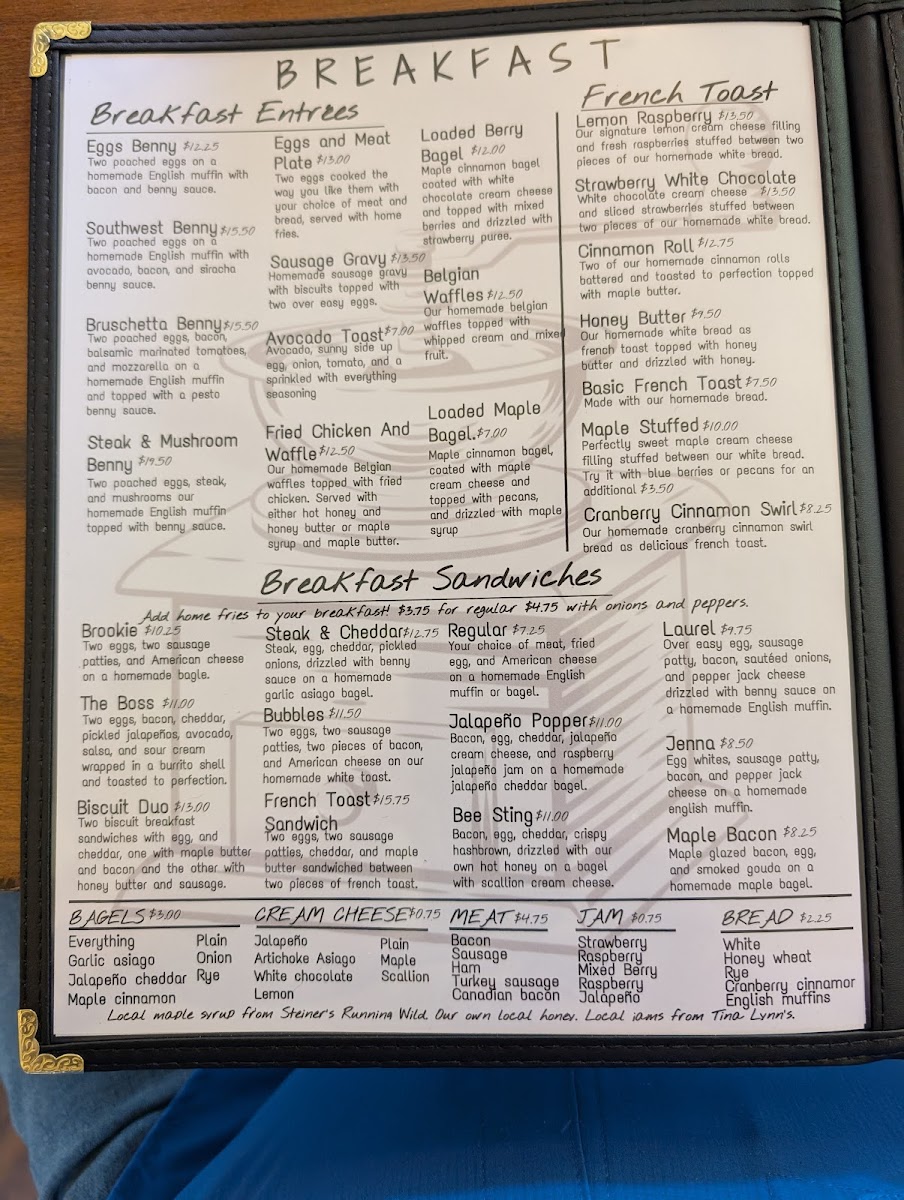 BREAKFAST
Breakfast Entrees
Eggs Benny $12.25
Two poached eggs on a
homemade English muffin with
bacon and benny sauce.
Southwest Benny $15.50
Two poached eggs on a
homemade English muffin with
avocado, bacon, and siracha
benny sauce.
Bruschetta Benny $15.50
Two poached eggs, bacon,
balsamic marinated tomatoes,
and mozzarella on a
homemade English muffin
and topped with a pesto
benny sauce.
Steak & Mushroom
Benny $19.50
Two poached eggs, steak,
and mushrooms our
homemade English muffin
topped with benny sauce.
Eggs and Meat
Plate $13.00
Two eggs cooked the
way you like them with
your choice of meat and
bread, served with home
fries.
Sausage Gravy $13.50
Homemade sausage gravy
with biscuits topped with
two over easy eggs.
Avocado Toast $7.00
Avocado, sunny side up
egg, onion, tomato, and a
sprinkled with everything
seasoning
Fried Chicken And
Waffle $12.50
Our homemade Belgian
waffles topped with fried
chicken. Served with
either hot honey and
honey butter or maple
syrup and maple butter.
Loaded Berry
Bagel $12.00
Maple cinnamon bagel
coated with white
chocolate cream cheese
and topped with mixed
berries and drizzled with
strawberry puree.
Belgian
Waffles $12.50
Our homemade belgian
waffles topped with
whipped cream and mixed
fruit.
Loaded Maple
Bagel. $7.00
Maple cinnamon bagel,
coated with maple
cream cheese and
topped with pecans,
and drizzled with maple
syrup
French Toast
Lemon Raspberry $13.50
Our signature lemon cream cheese filling
and fresh raspberries stuffed between two
pieces of our homemade white bread.
Strawberry White Chocolate
White chocolate cream cheese $13.50
and sliced strawberries stuffed between
two pieces of our homemade white bread.
Cinnamon Roll $12.75
Two of our homemade cinnamon rolls
battered and toasted to perfection topped
with maple butter.
Honey Butter $9.50
Our homemade white bread as
french toast topped with honey
butter and drizzled with honey.
Basic French Toast $7.50
Made with our homemade bread.
Maple Stuffed $10.00
Perfectly sweet maple cream cheese
filling stuffed between our white bread.
Try it with blue berries or pecans for an
additional $3.50
Cranberry Cinnamon Swirl $8.25
Our homemade cranberry cinnamon swirl
bread as delicious french toast.
Breakfast Sandwiches
Add home fries to your breakfast! $3.75 for regular $4.75 with onions and peppers.
Brookie $10.25
Two eggs, two sausage
patties, and American cheese
on a homemade bagle.
The Boss $11.00
Two eggs, bacon, cheddar,
pickled jalapeños, avocado,
salsa, and sour cream
wrapped in a burrito shell
and toasted to perfection.
Biscuit Duo $13.00
Two biscuit breakfast
sandwiches with egg, and
cheddar, one with maple butter
and bacon and the other with
honey butter and sausage.
Steak & Cheddar $12.75
Steak, egg, cheddar, pickled
onions, drizzled with benny
sauce on a homemade
garlic asiago bagel.
Bubbles $11.50
Two eggs, two sausage
patties, two pieces of bacon,
and American cheese on our
homemade white toast.
French Toast $15.75
Sandwich
Two eggs, two sausage
patties, cheddar, and maple
butter sandwiched between
two pieces of french toast.
Regular $7.25
Your choice of meat, fried
egg, and American cheese
on a homemade English
muffin or bagel.
Jalapeño Popper $11.00
Bacon, egg, cheddar, jalapeño
cream cheese, and raspberry
jalapeño jam on a homemade
jalapeño cheddar bagel.
Bee Sting $11.00
Bacon, egg, cheddar, crispy
hashbrown, drizzled with our
own hot honey on a bagel
with scallion cream cheese.
Laurel $9.75
Over easy egg, sausage
patty, bacon, sautéed onions,
and pepper jack cheese
drizzled with benny sauce on
a homemade English muffin.
Jenna $8.50
Egg whites, sausage patty,
bacon, and pepper jack
cheese on a homemade
english muffin.
Maple Bacon $8.25
Maple glazed bacon, egg,
and smoked gouda on a
homemade maple bagel.
BAGELS $3.00
Everything
Garlic asiago
Jalapeño cheddar
Maple cinnamon
Plain
Onion
Rye
CREAM CHEESE $0.75
Jalapeño
Artichoke Asiago
White chocolate
Lemon
Plain
Maple
Scallion
MEAT $4.75
Bacon
Sausage
Ham
Turkey sausage
Canadian bacon
JAM $0.75
Strawberry
Raspberry
Mixed Berry
Raspberry
Jalapeño
BREAD $2.25
White
Honey wheat
Rye
Cranberry cinnamor
English muffins
Local maple syrup from Steiner's Running Wild. Our own local honey. Local jams from Tina Lynn's.